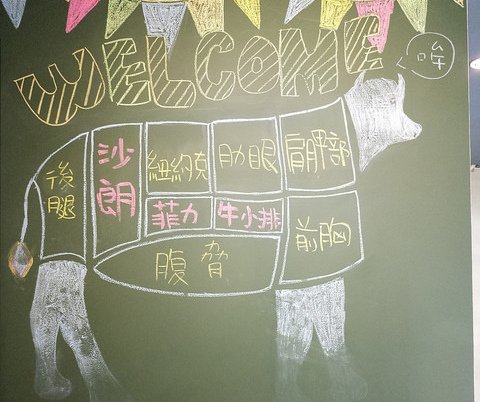 WELCOME
哞
後腿
沙朗
紐約克
肋眼
肩胛部
菲力
牛小排
前胸
腹脅